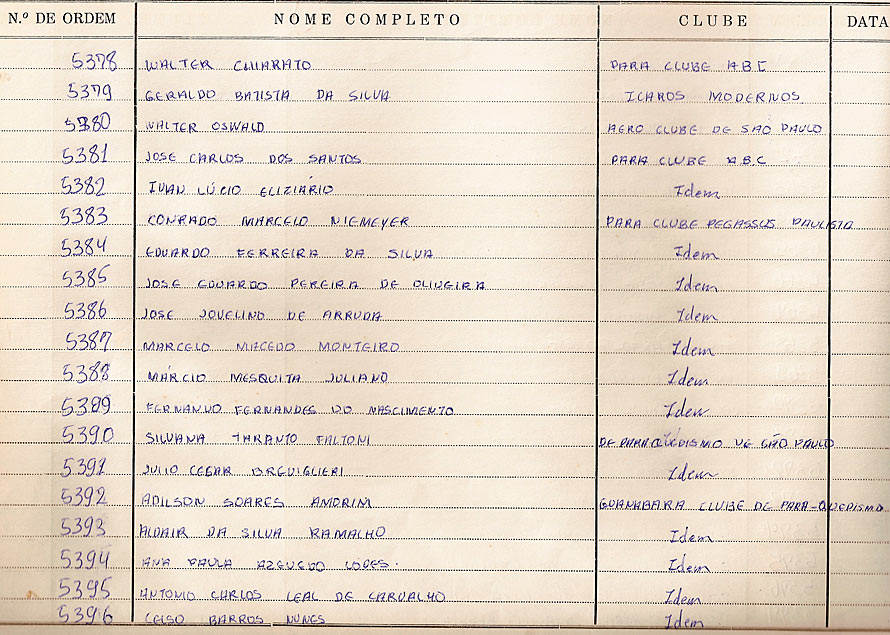 N.º DE ORDEM NOME COMPLETO CLUBE DATA
5378 WALTER CHIARATO PARA CLUBE ABC
5379 GERALDO BATISTA DA SILVA ICAROS MODERNOS
5380 WALTER OSWALD AERO CLUBE DE SAO PAULO
5381 JOSE CARLOS DOS SANTOS PARA CLUBE ABC
5382 IVAN LÚCIO ELIZIÁRIO Idem
5383 CONRADO MARCELO NIEMEYER PARA CLUBE PEGASSUS PAULISTA
5384 EDUARDO FERREIRA DA SILVA Idem
5385 JOSE EDUARDO PEREIRA DE OLIVEIRA Idem
5386 JOSE JOVELINO DE ARRUDA Idem
5387 MARCELO MACEDO MONTEIRO Idem
5388 MÁRCIO MESQUITA JULIANO Idem
5389 FERNANDO FERNANDES DO NASCIMENTO Idem
5390 SILVANA TARANTO FALTONI DE PARAQUEDISMO DE SÃO PAULO
5391 JULIO CESAR Idem
5392 ADILSON SOARES AMORIM GUANABARA CLUBE DE PARA-QUEDISMO
5393 ALDAIR DA SILVA RAMALHO Idem
5394 ANA PAULA AZEVEDO LOPES. Idem
5395 ANTONIO CARLOS LEAL DE CARVALHO Idem
5396 CELSO BARROS NUNES Idem